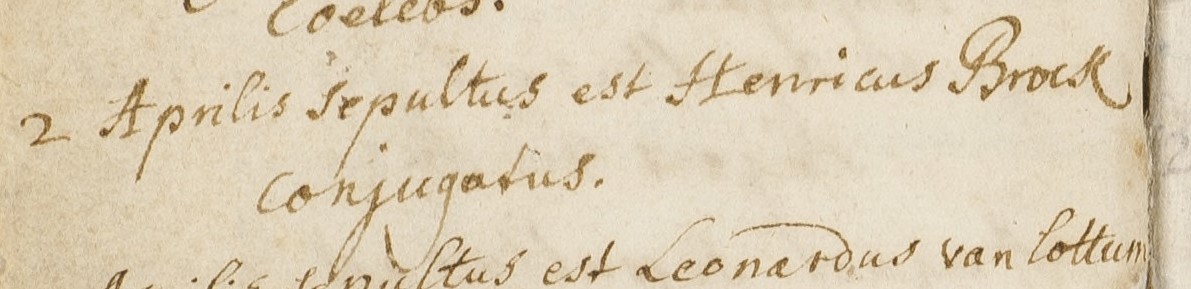 Coelebs.
2 Aprilis sepultus est Henricus Broek
conjugatus.
Aprilis sepultus est Leonardus van lottum